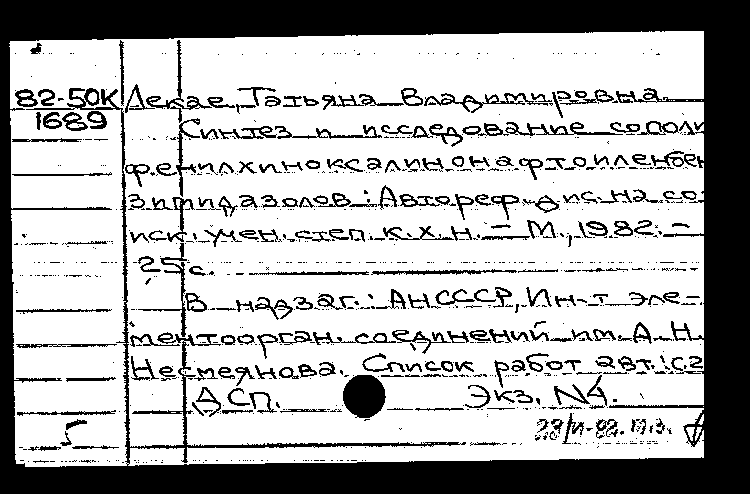 82-50К Декае, Татьяна Владимировна.
1689 Синтез и исследование сополи
фенилхиноксалинонафтоиленбен
зимидазолов: Автореф. дис. на со
иск. учен. степ. к. х. н. – М., 1982. –
25 с.
В надзаг.: АН СССР, Ин-т эле-
ментоорган. соединений им. А. Н.
Несмеянова. Список работ авт.: с. 2
ДСП. Экз. N4.
5